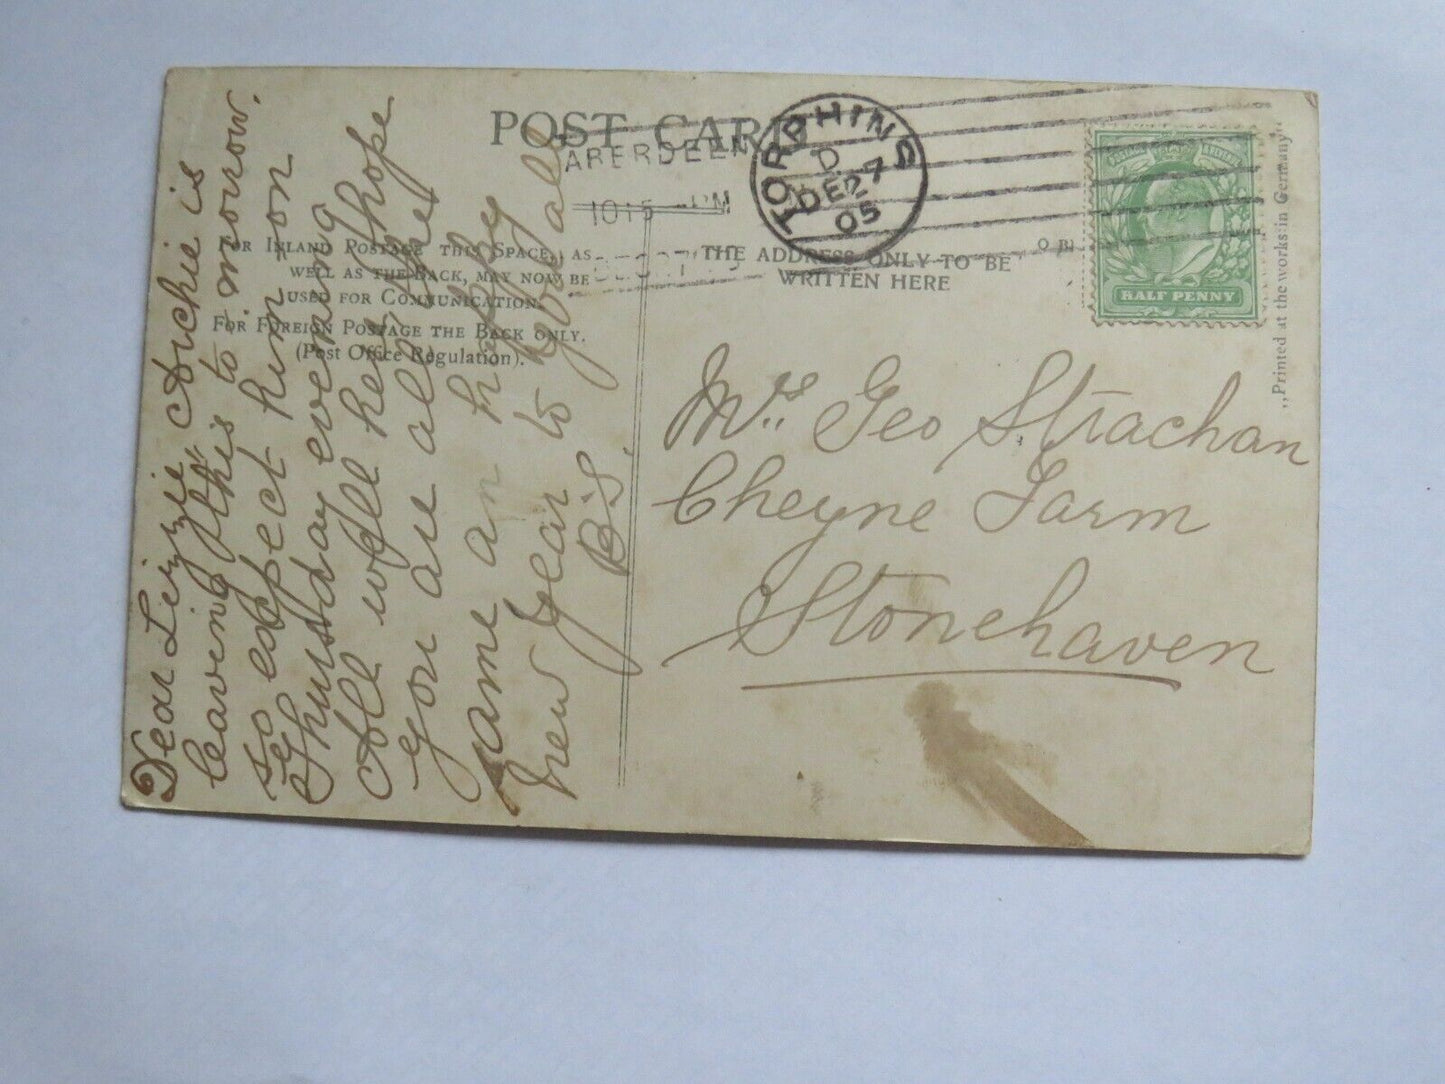 POST CARD
ABERDEEN
1015 PM
TORPHINS
D
DE 27
05
FOR INLAND POSTAGE THIS SPACE, AS
WELL AS THE BACK, MAY NOW BE
USED FOR COMMUNICATION.
FOR FOREIGN POSTAGE THE BACK ONLY.
(Post Office Regulation).
THE ADDRESS ONLY TO BE
WRITTEN HERE
HALF PENNY
„Printed at the works in Germany"
Dear Lizzie Archie is
leaving this to morrow.
to expect him on
Thursday evening
All well here hope
you are all the
same a happy
new year to you all
B.S.
Mrs Geo Strachan
Cheyne Farm
Stonehaven